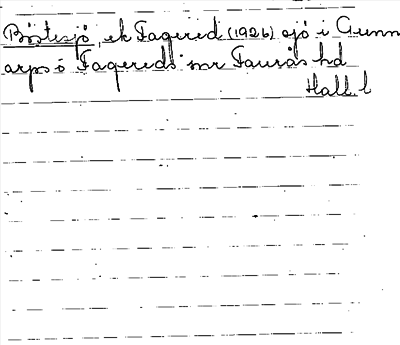 Bötesjö, ek Fagered (1926) sjö i Gunn
arps o Fagereds snr Faurås hd
Hall. l